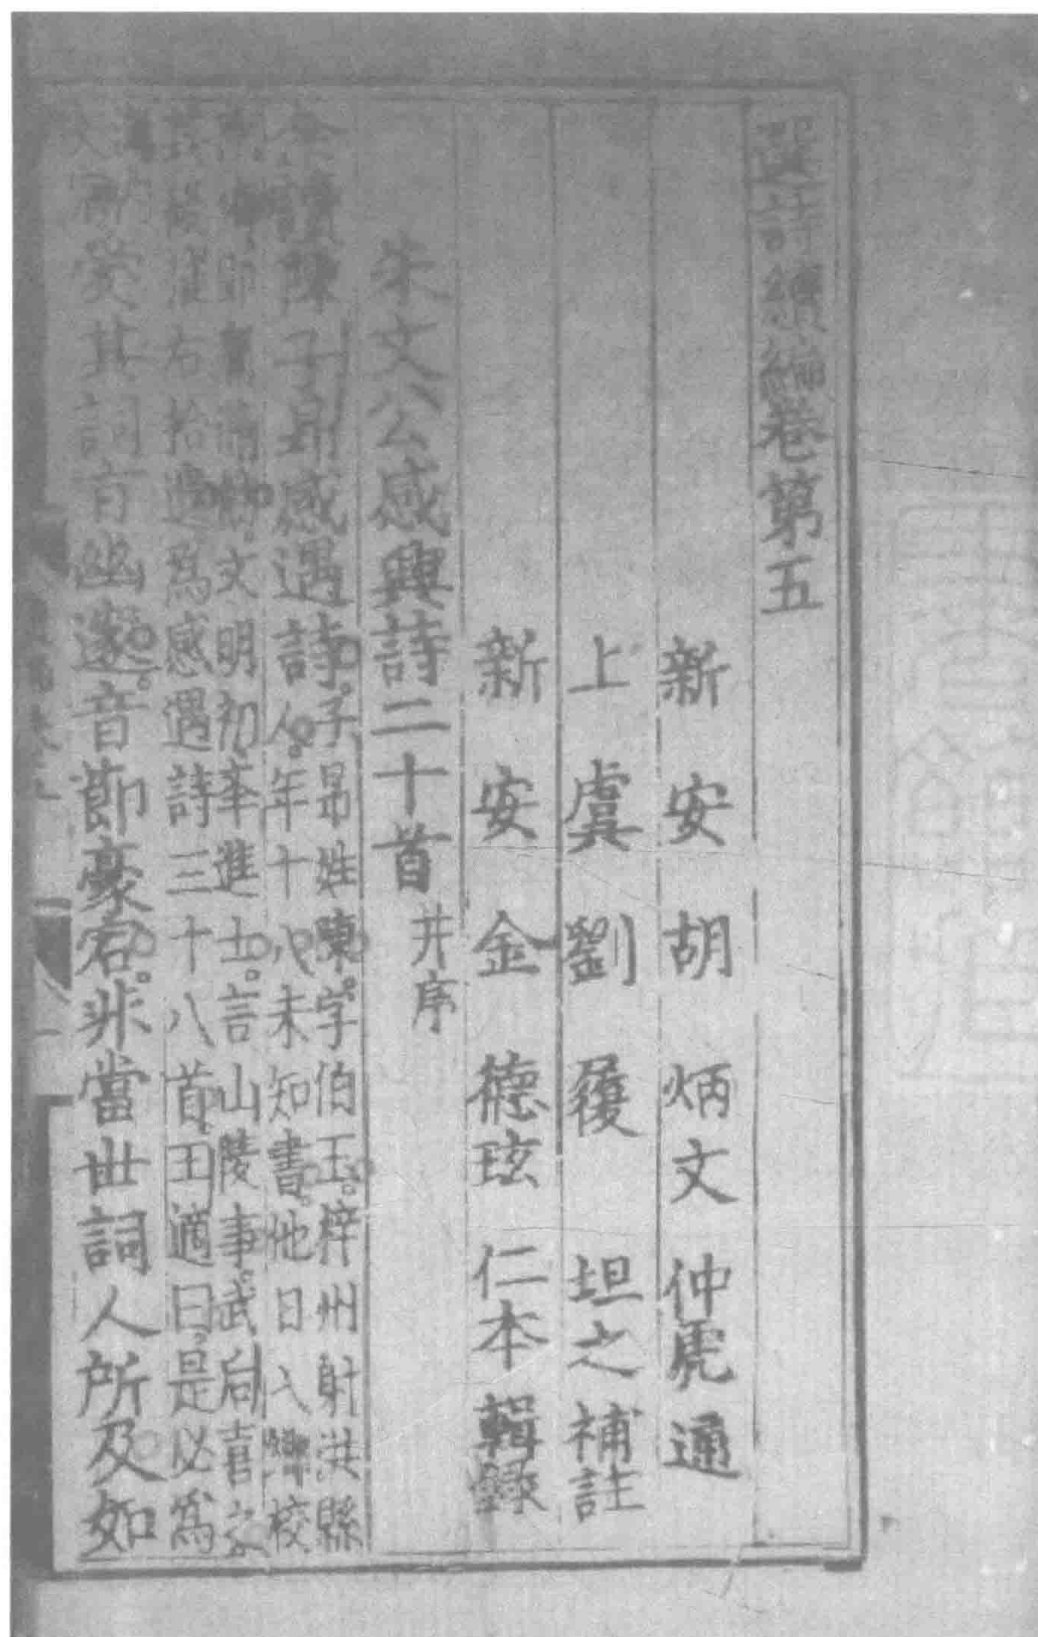 選詩續編卷第五
新安胡炳文仲虎通
上虞劉履坦之補註
新安金德玹仁本輯錄
朱文公感興詩二十首 并序
余讀陳子昂感遇詩。子昂姓陳。字伯玉。梓州射洪縣
人。年十八未知書。他日入鄉校
即慨然悔。文明初。夆進士。言山陵事。武后喜之。
右拾遺。爲感遇詩三十八首。王適曰。是必爲
海内文宗。愛其詞旨幽邃。音節豪宕。非當世詞人所及。如